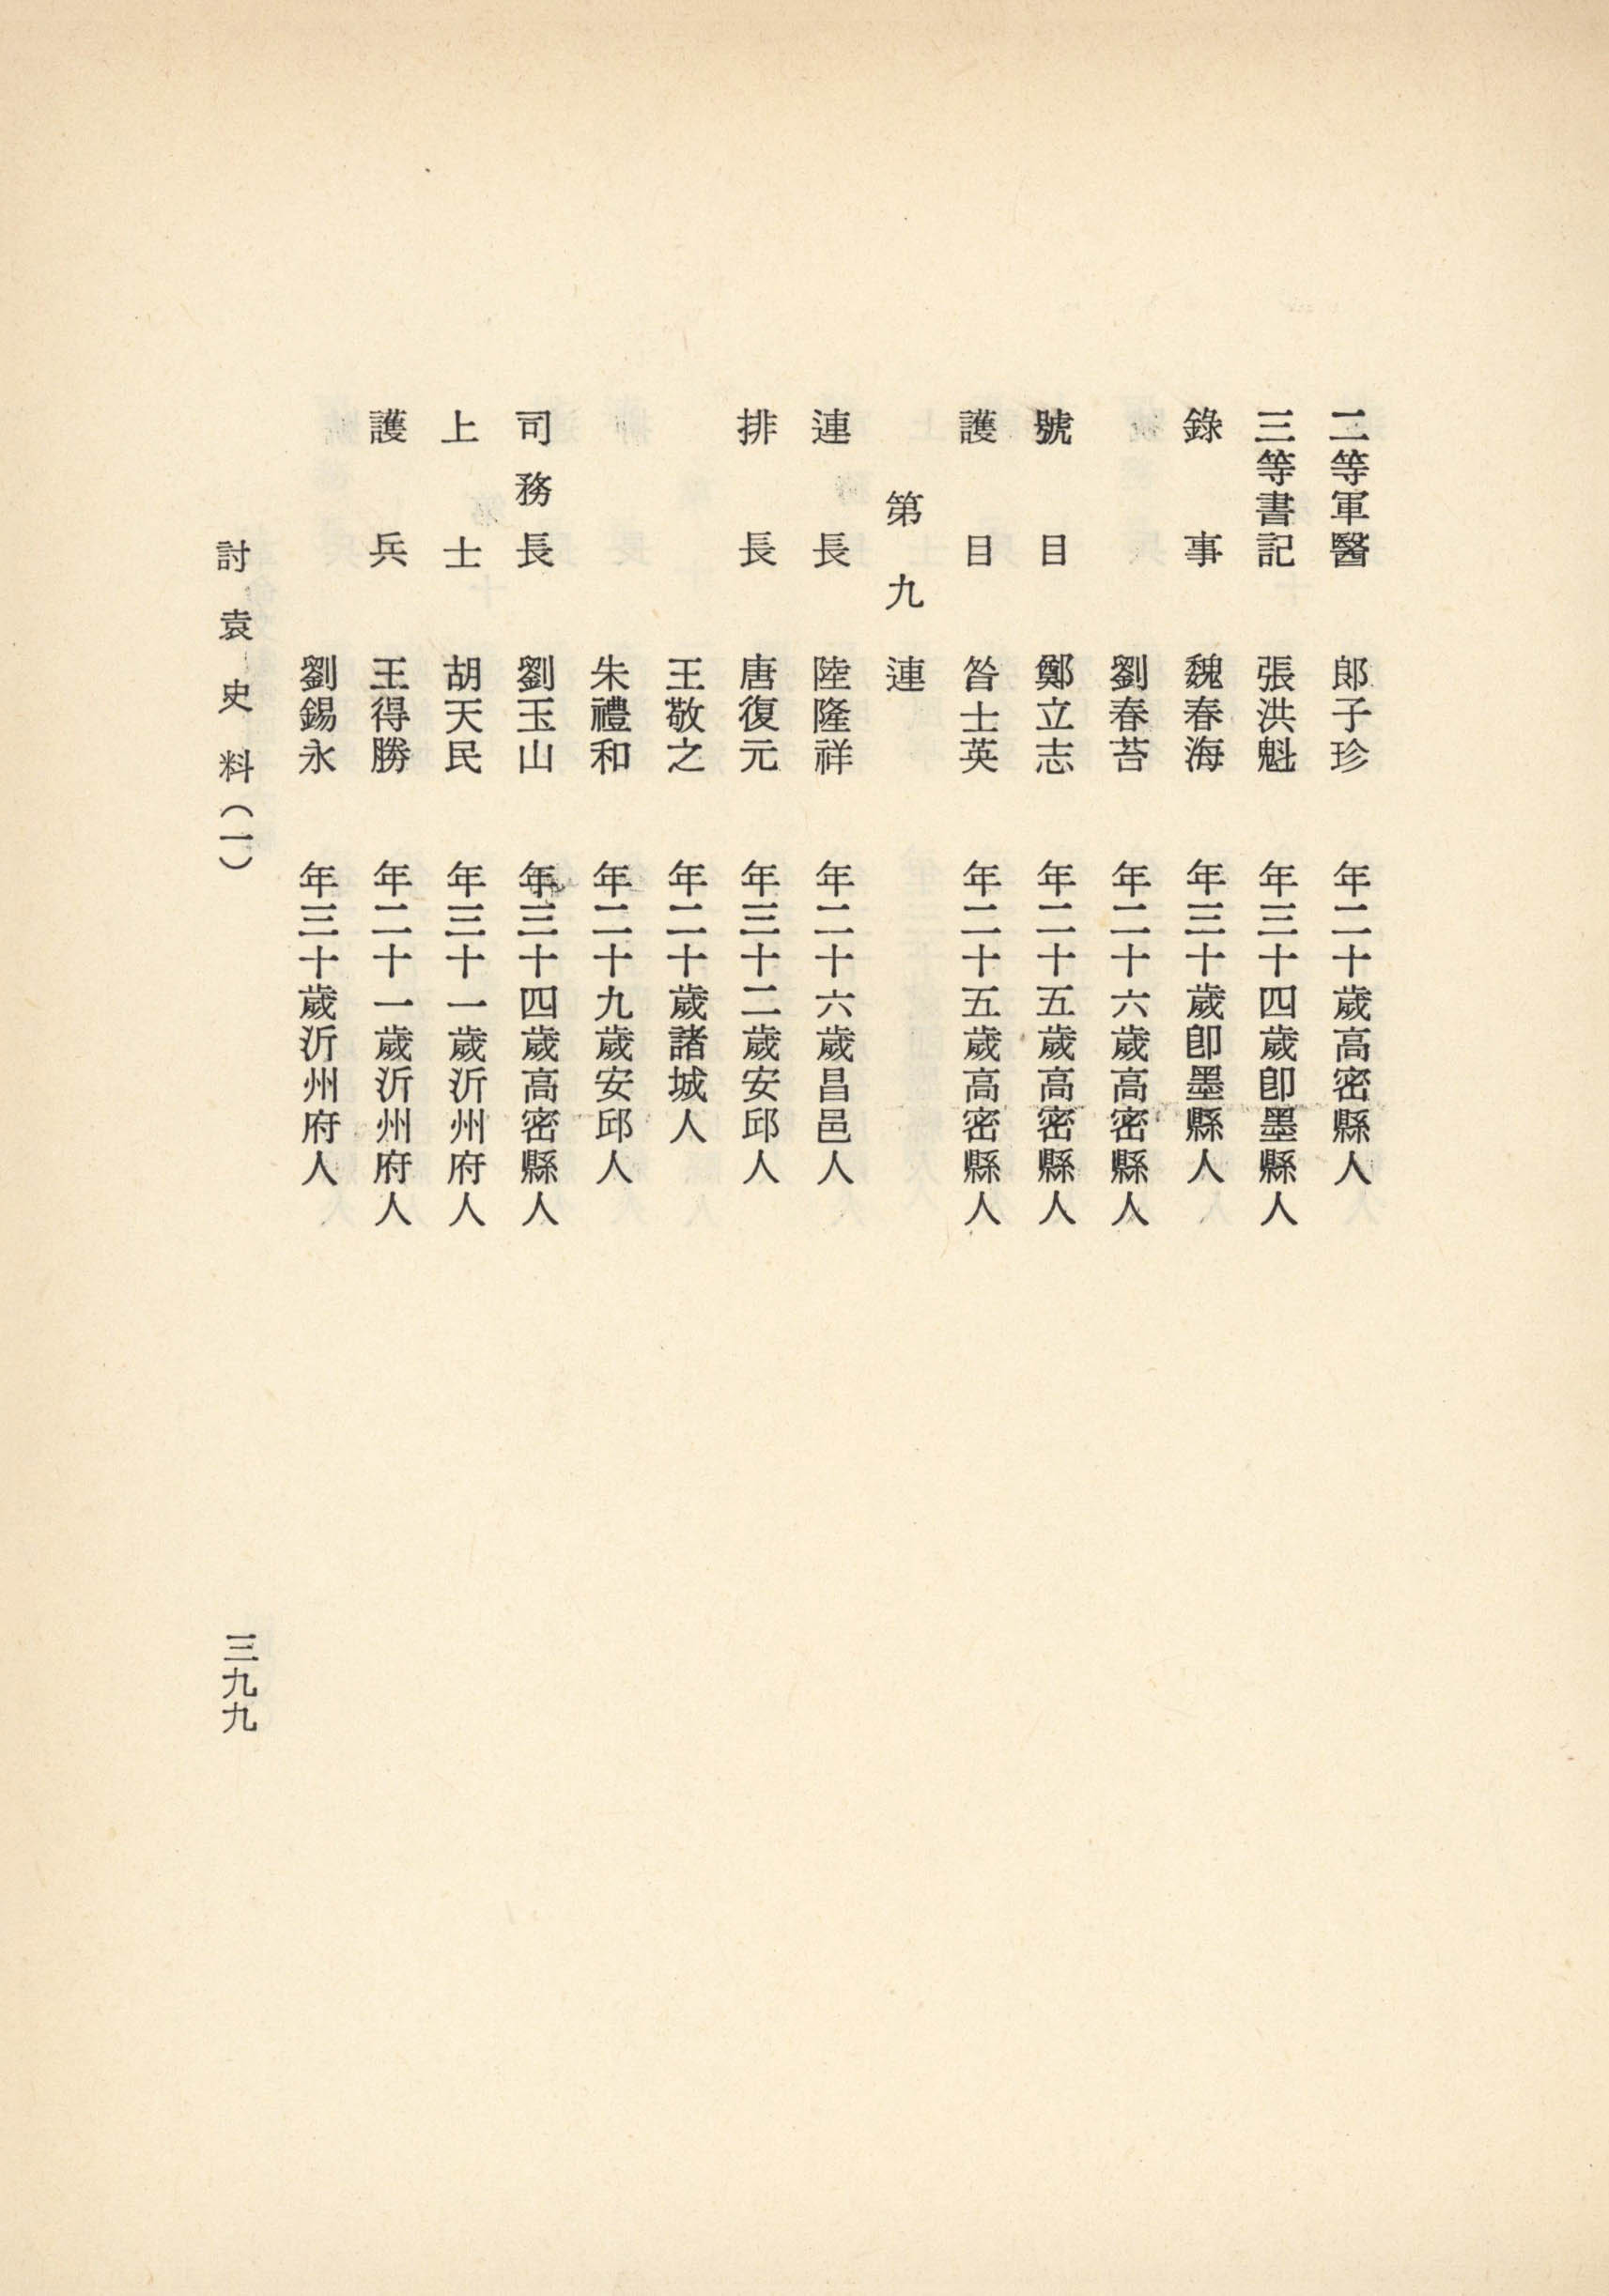 二等軍醫　郎子珍　年二十歲高密縣人
三等書記　張洪魁　年三十四歲卽墨縣人
錄事　魏春海　年三十歲卽墨縣人
劉春苔　年二十六歲高密縣人
號目　鄭立志　年二十五歲高密縣人
護目　昝士英　年二十五歲高密縣人
第九連
連長　陸隆祥　年二十六歲昌邑人
排長　唐復元　年三十二歲安邱人
王敬之　年二十歲諸城人
朱禮和　年二十九歲安邱人
司務長　劉玉山　年三十四歲高密縣人
上士　胡天民　年三十一歲沂州府人
護兵　王得勝　年二十一歲沂州府人
劉錫永　年三十歲沂州府人
討袁史料（一）
三九九